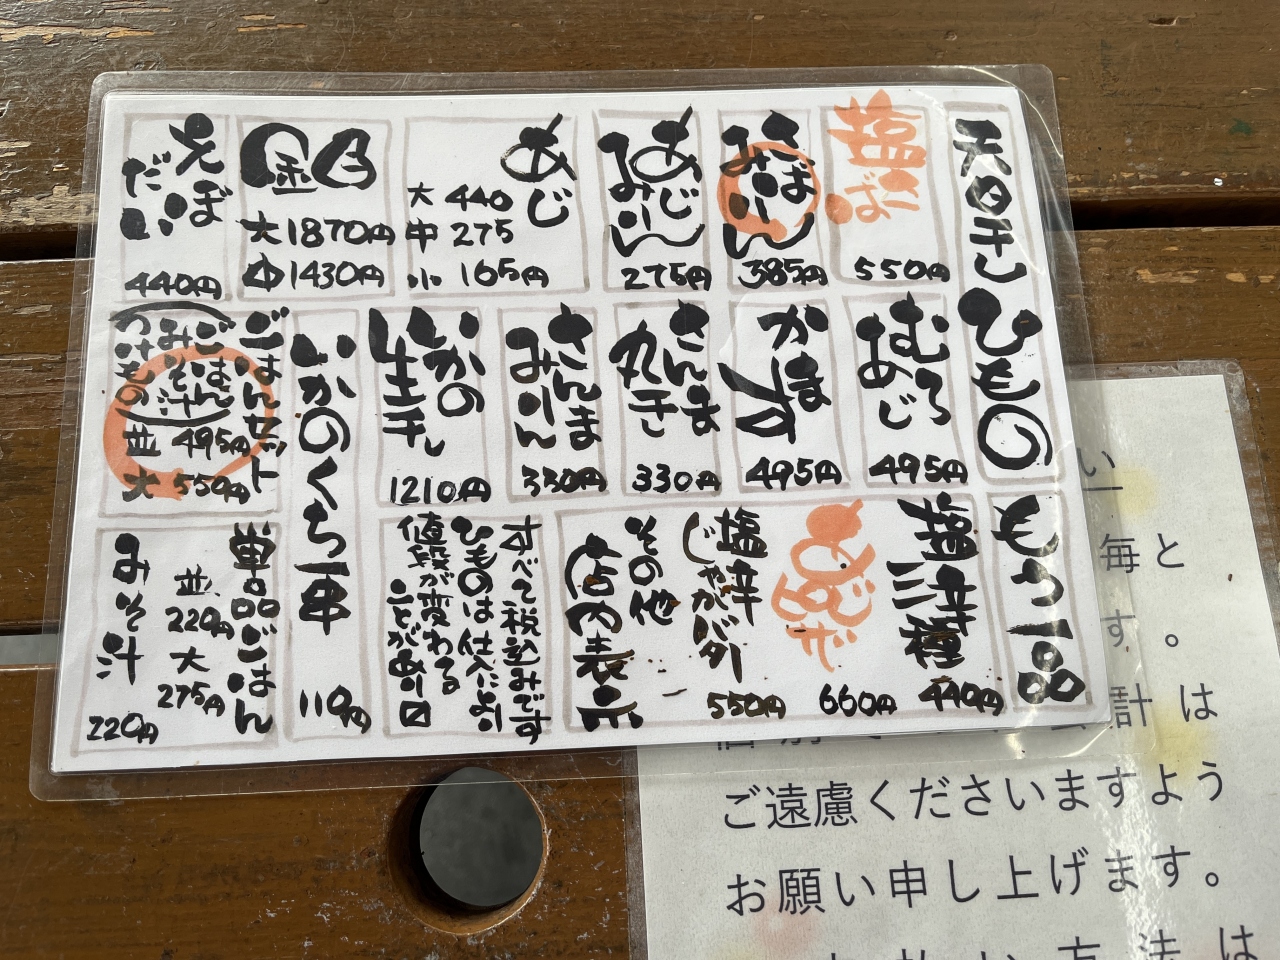 天日干しひもの
塩さば
550円
さばみりん
385円
あじみりん
275円
あじ
大 440
中 275
小 165円
金目
大1870円
中1430円
えぼだい
440円
むろあじ
495円
かます
495円
さんま丸干
330円
さんまみりん
330円
いかの生干し
1210円
いかのくち一串
110円
ごはんセット
(ごはん
みそ汁
つけもの)
並 495円
大 550円
もつ一品
塩辛種
440円
660円
塩辛
じゃが
550円
その他
店内表示
すべて税込みです
ひものは仕入により
値段が変わる
ことがあり〼
単品ごはん
並 220円
大 275円
みそ汁
220円
い
毎と
す。
計は
ご遠慮くださいますよう
お願い申し上げます。
い方法は